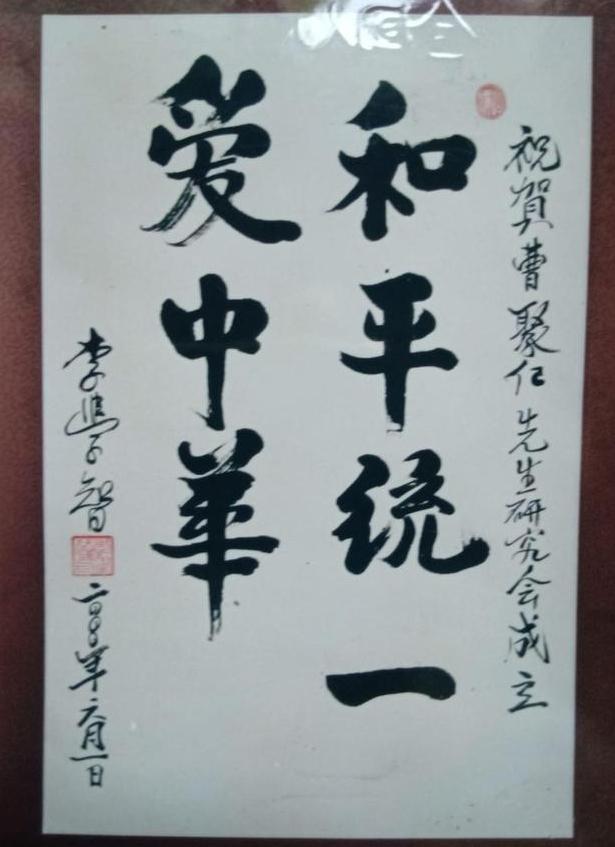 祝賀曹聚仁先生研究会成立
和平统一
爱中華
李學智
二〇〇〇年六月一日